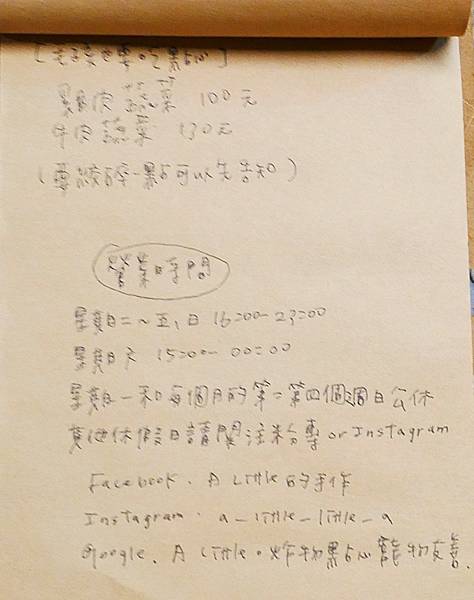 [毛孩也要吃點心]
雞肉蔬菜 100元
牛肉蔬菜 130元
(要絞碎一點可以先告知)
營業時間
星期二～五、日 16:00-23:00
星期六 15:00-00:00
星期一和每個月的第二第四個週日公休
其他休假日請關注粉專 or Instagram
Facebook. A Little的手作
Instagram. a_little_little_a
Google. A little。炸物點心寵物友善.